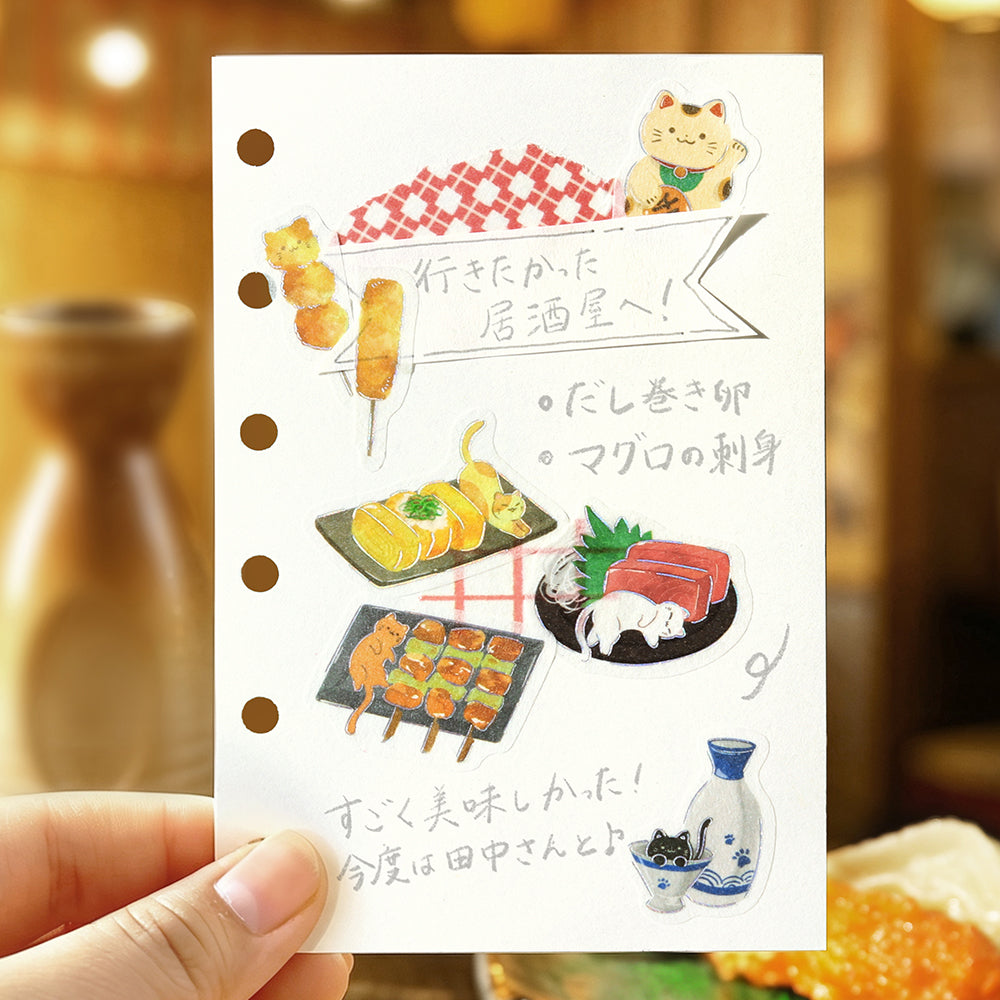 行きたかった
居酒屋へ!
だし巻き卵
マグロの刺身
すごく美味しかった!
今度は田中さんと♪